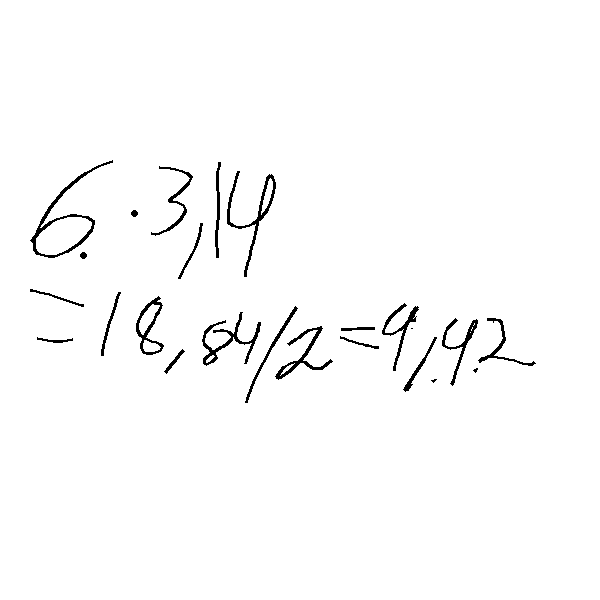 6 · 3,14
= 18,84/2 = 9,42